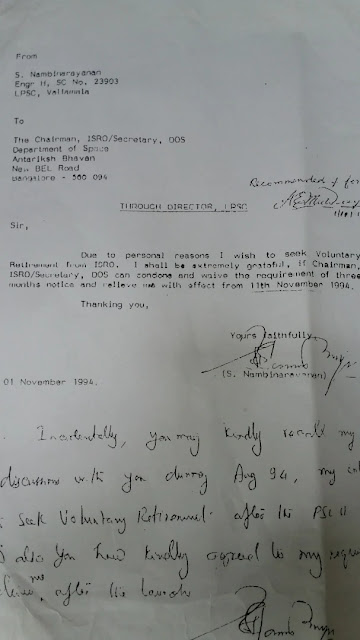 From
S. Nambinarayanan
Engr H, SC No. 23903
LPSC, Valiamala
To
The Chairman, ISRO/Secretary, DOS
Department of Space
Antariksh Bhavan
New BEL Road
Bangalore - 560 094
Recommended & for
THROUGH DIRECTOR, LPSC
Sir,
Due to personal reasons I wish to seek Voluntary
Retirement from ISRO. I shall be extremely grateful, if Chairman,
ISRO/Secretary, DOS can condone and waive the requirement of three
months notice and relieve me with effect from 11th November 1994.
Thanking you,
Yours faithfully
(S. Nambinarayanan)
01 November 1994.
Incidentally, you may kindly recall my
discussion with you during Aug 94, my
seek Voluntary Retirement after the PSLV
also you have kindly agreed to my
me after the launch